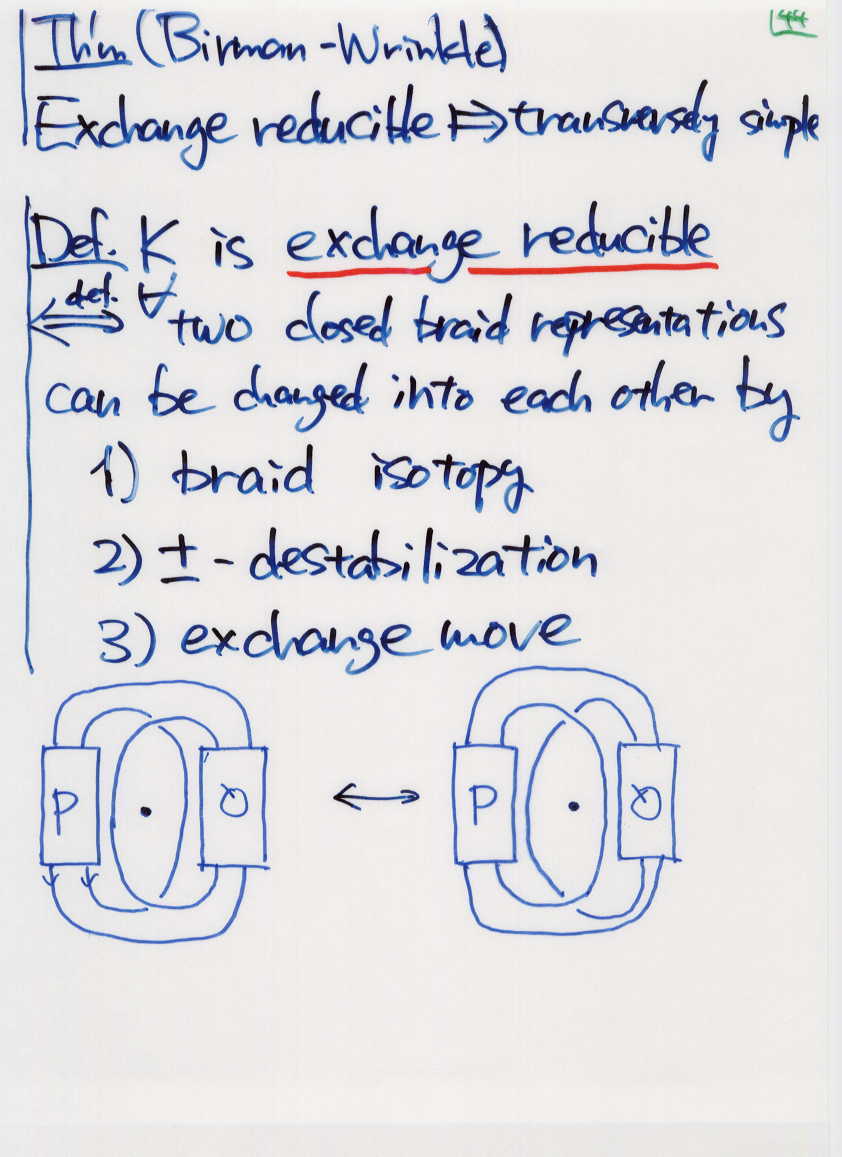 44
Th'm (Birman-Wrinkle)
Exchange reducible ⟹ transversely simple
Def. K is exchange reducible
⟺ def. ∀ two closed braid representations
can be changed into each other by
1) braid isotopy
2) ± - destabilization
3) exchange move
P ⟷ P